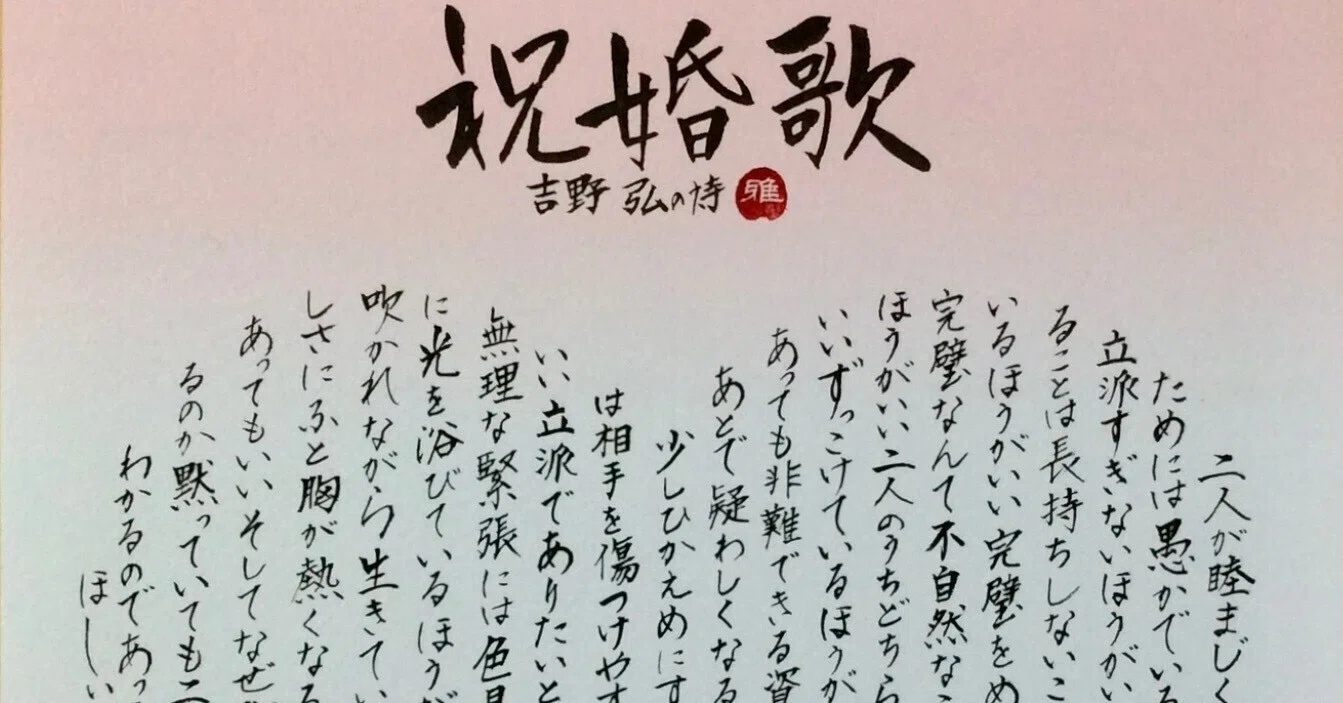 祝婚歌
吉野 弘の詩
雅
二人が睦まじく
ためには愚かでいる
立派すぎないほうがい
ることは長持ちしないこ
いるほうがいい完璧をめ
完璧なんて不自然なこ
ほうがいい二人のうちどちら
いいずっこけているほうが
あっても非難できる資
あとで疑わしくなる
少しひかえめにす
は相手を傷つけやす
いい立派でありたいと
無理な緊張には色
に光を浴びているほうが
吹かれながら生きてい
しさにふと胸が熱くなる
あってもいいそしてなぜ
るのか黙っていても二
わかるのであっ
ほしい